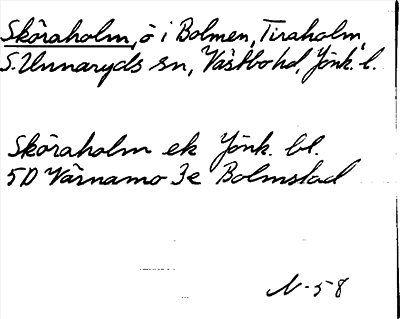 Sköraholm, ö i Bolmen, Tiraholm,
S. Unnaryds sn, Västbo hd, Jönk. l.
Sköraholm ek Jönk. bl.
5D Värnamo 3e Bolmstad
N-58